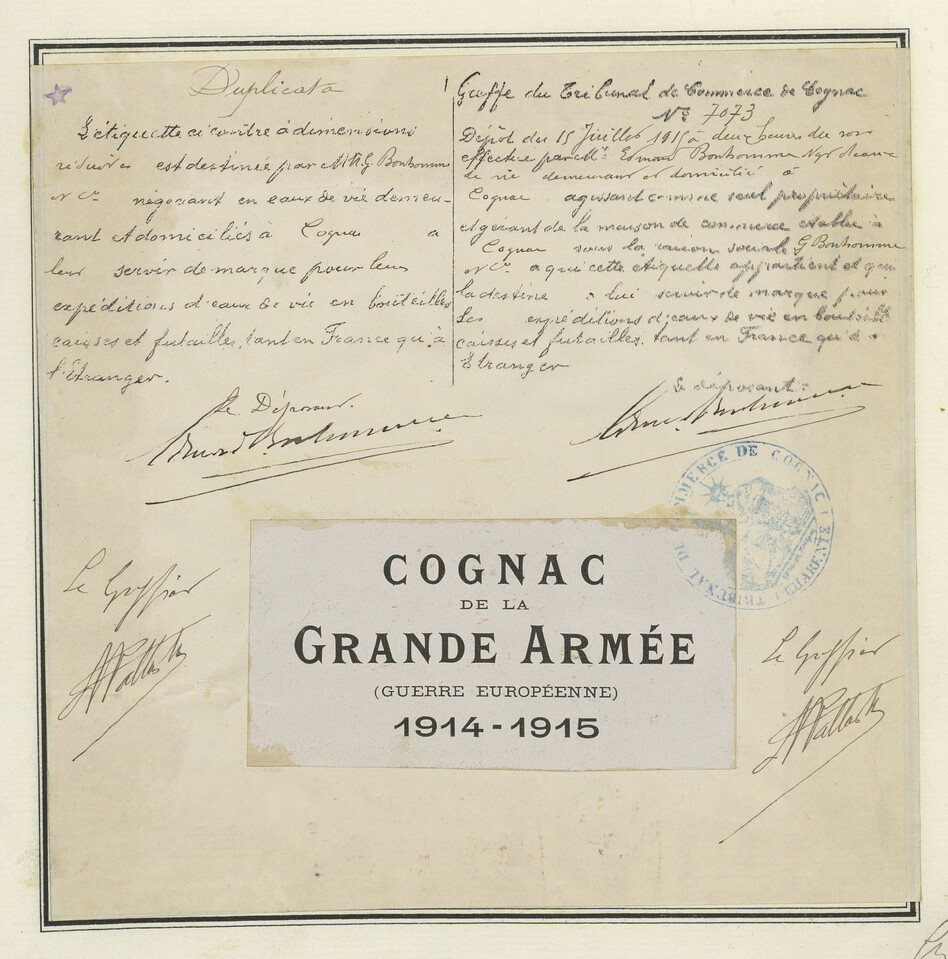 Duplicata
L'étiquette ci contre à dimensions
réduites est destinée par MM G. Bonhomme
et Cie négociant en eaux de vie demeu-
rant et domiciliés à Cognac à
leur servir de marque pour leurs
expéditions d'eaux de vie en bouteilles
caisses et futailles, tant en France qu'à
l'Etranger.
Le Déposant.
Greffe du Tribunal de Commerce de Cognac
No 7073
Dépôt du 15 Juillet 1915 à deux heures du soir
effectué par Mr Edmond Bonhomme Ngt d'eaux-
de vie demeurant et domicilié à
Cognac agissant comme seul propriétaire
et gérant de la maison de commerce établie à
Cognac sous la raison sociale G Bonhomme
et Cie à qui cette étiquette appartient et qui
la destine à lui servir de marque pour
ses expéditions d'eaux de vie en bouteilles
caisses et futailles, tant en France qu'à
l'Etranger
Le déposant:
TRIBUNAL DE COMMERCE DE COGNAC
CHARENTE
Le Greffier
COGNAC
DE LA
GRANDE ARMÉE
(GUERRE EUROPÉENNE)
1914-1915
Le Greffier